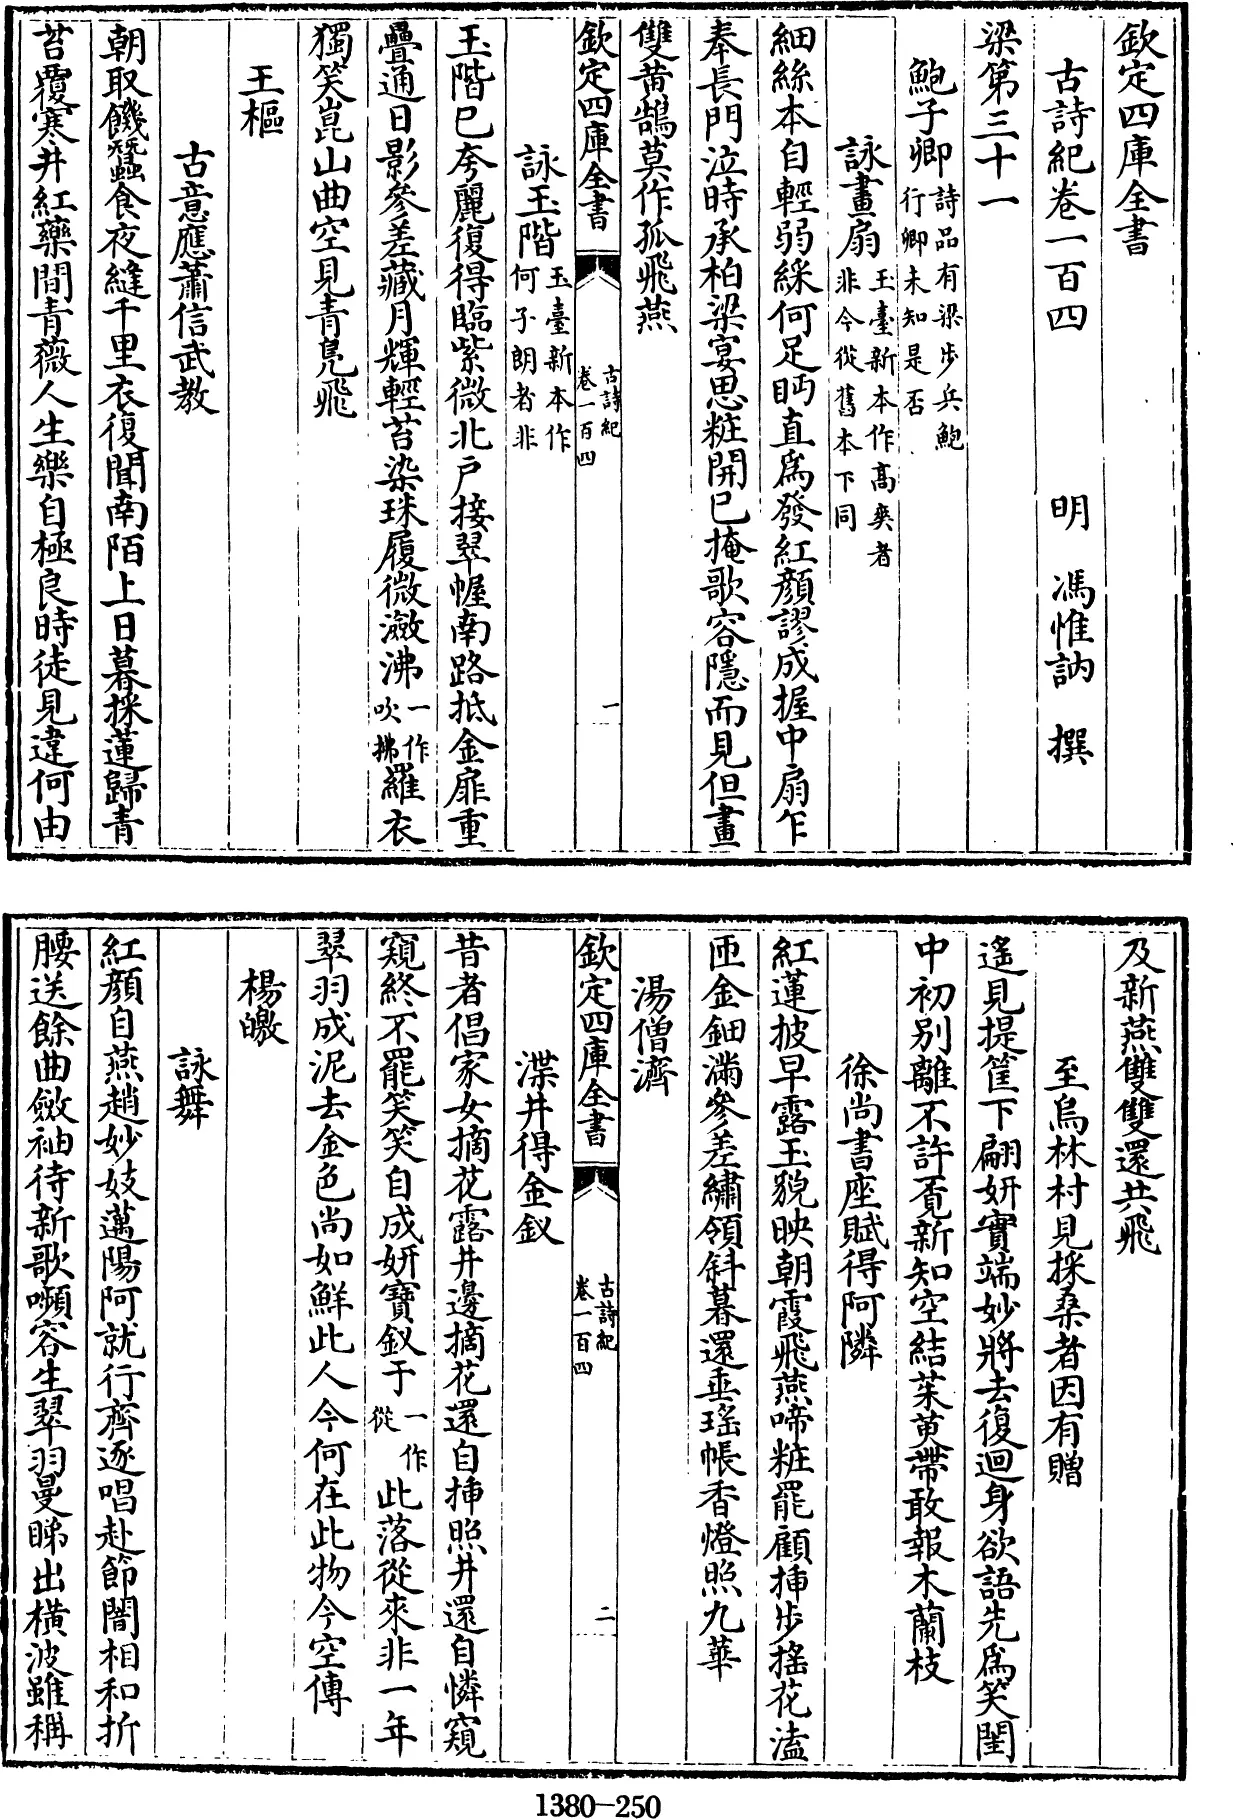 欽定四庫全書
古詩紀卷一百四　明　馮惟訥　撰
梁第三十一
鮑子卿詩品有梁步兵鮑行卿未知是否
詠畫扇玉臺新本作高爽者非今從舊本下同
細絲本自輕弱綵何足眄直為發紅顏謬成握中扇乍
奉長門泣時承柏梁宴思粧開已掩歌容隱而見但畫
雙黄鵠莫作孤飛燕
欽定四庫全書　古詩紀卷一百四　一
詠玉階玉臺新本作何子朗者非
玉階已夸麗復得臨紫微北戸接翠幄南路抵金扉重
疊通日影參差藏月輝輕苔染珠履微澉沸一作吹拂羅衣
獨笑崑山曲空見青鳧飛
王樞
古意應蕭信武教
朝取饑蠶食夜縫千里衣復聞南陌上日暮採蓮歸青
苔覆寒井紅藥間青薇人生樂自極良時徒見違何由
及新燕雙雙還共飛
至烏林村見採桑者因有贈
遙見提筐下翩妍實端妙將去復迴身欲語先為笑閨
中初別離不許覔新知空結茱萸帶敢報木蘭枝
徐尚書座賦得阿隣
紅蓮披早露玉貌映朝霞飛燕啼粧罷顧揷步搖花溘
匝金鈿滿參差繡領斜暮還垂瑤帳香燈照九華
湯僧濟
渫井得金釵
昔者倡家女摘花露井邊摘花還自揷照井還自憐窺
窺終不罷笑笑自成妍寶釵于一作從此落從來非一年
翠羽成泥去金色尚如鮮此人今何在此物今空傳
楊皦
詠舞
紅顏自燕趙妙妓邁陽阿就行齊逐唱赴節闇相和折
腰送餘曲斂袖待新歌嚬容生翠羽曼睇出橫波雖稱
1380—250